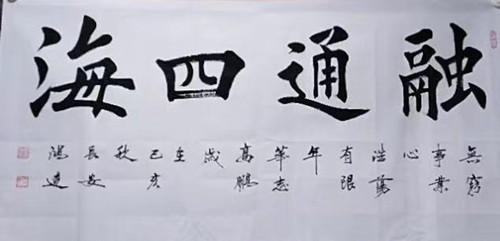 融通四海
無窮
事業
心
浩蕩
有限
年
華志
高鵬
歲
在
己亥
秋
長安